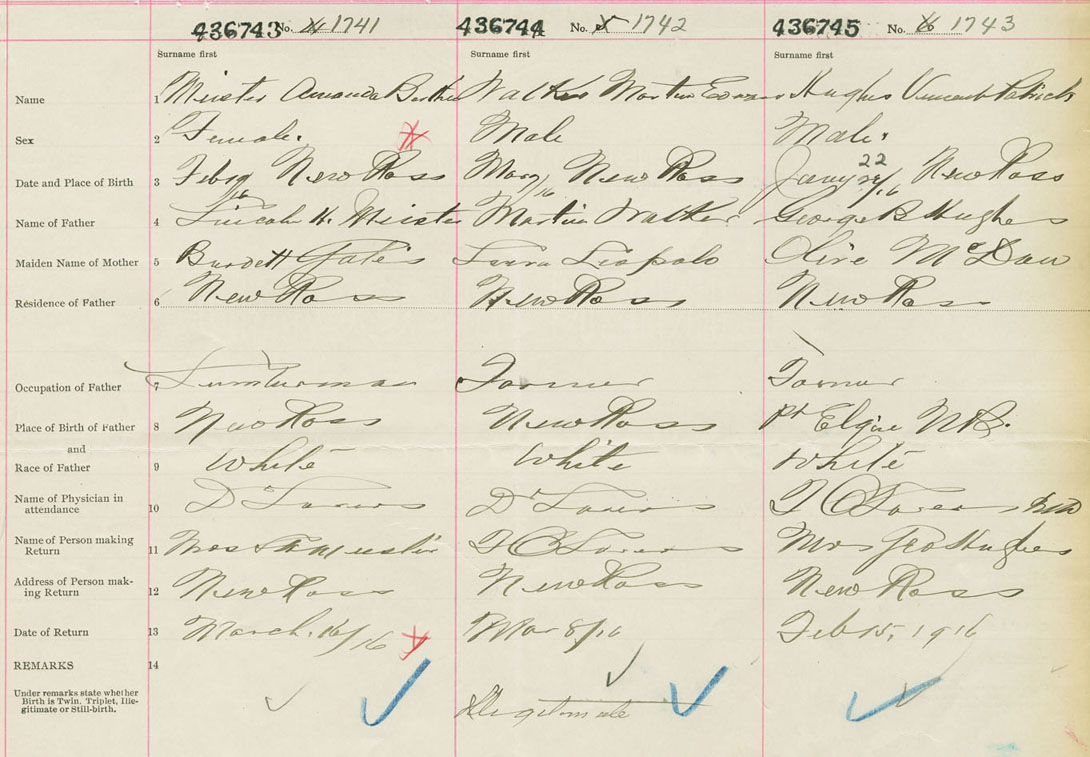 436743 No. 1741 436744 No. 1742 436745 No. 1743
Surname first Surname first Surname first
Name 1 Meister Amanda Walker Martin Hughes Vincent Patrick
Sex 2 Female. Male Male.
Date and Place of Birth 3 Feb New Ross New Ross Jany 22/16 New Ross
Name of Father 4 Lincoln H. Meister Martin Walker George B Hughes
Maiden Name of Mother 5 Burdett Leopold Olive
Residence of Father 6 New Ross New Ross New Ross
Occupation of Father 7 Lumberman Farmer Farmer
Place of Birth of Father 8 New Ross New Ross Pt Elgin N.B.
and
Race of Father 9 White White White
Name of Physician in
attendance 10
Name of Person making
Return 11 Mrs Meister Mrs Geo Hughes
Address of Person mak-
ing Return 12 New Ross New Ross New Ross
Date of Return 13 March 16/16 Mar 8/16 Feb 15, 1916
REMARKS 14
Under remarks state whether
Birth is Twin, Triplet, Ille-
gitimate or Still-birth. Illegitimate